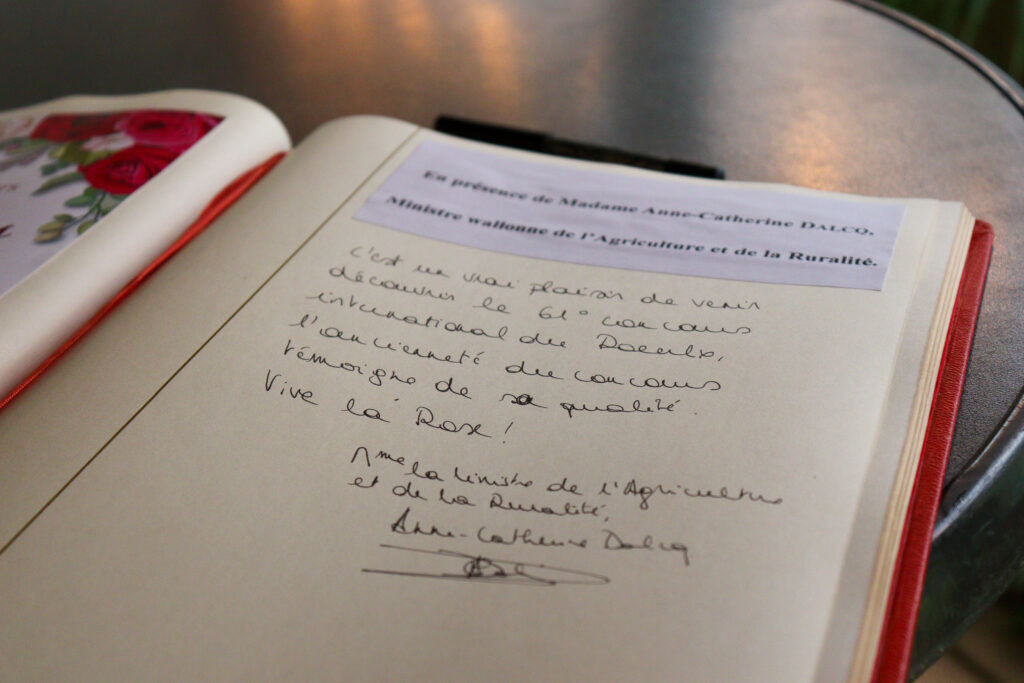 En présence de Madame Anne-Catherine DALCQ,
Ministre wallonne de l'Agriculture et de la Ruralité.
C'est un vrai plaisir de venir
découvrir le 61° concours
international du Roeulx,
l'ancienneté du concours
témoigne de sa qualité.
Vive la Rose !
Mme la Ministre de l'Agriculture
et de la Ruralité,
Anne-Catherine Dalcq